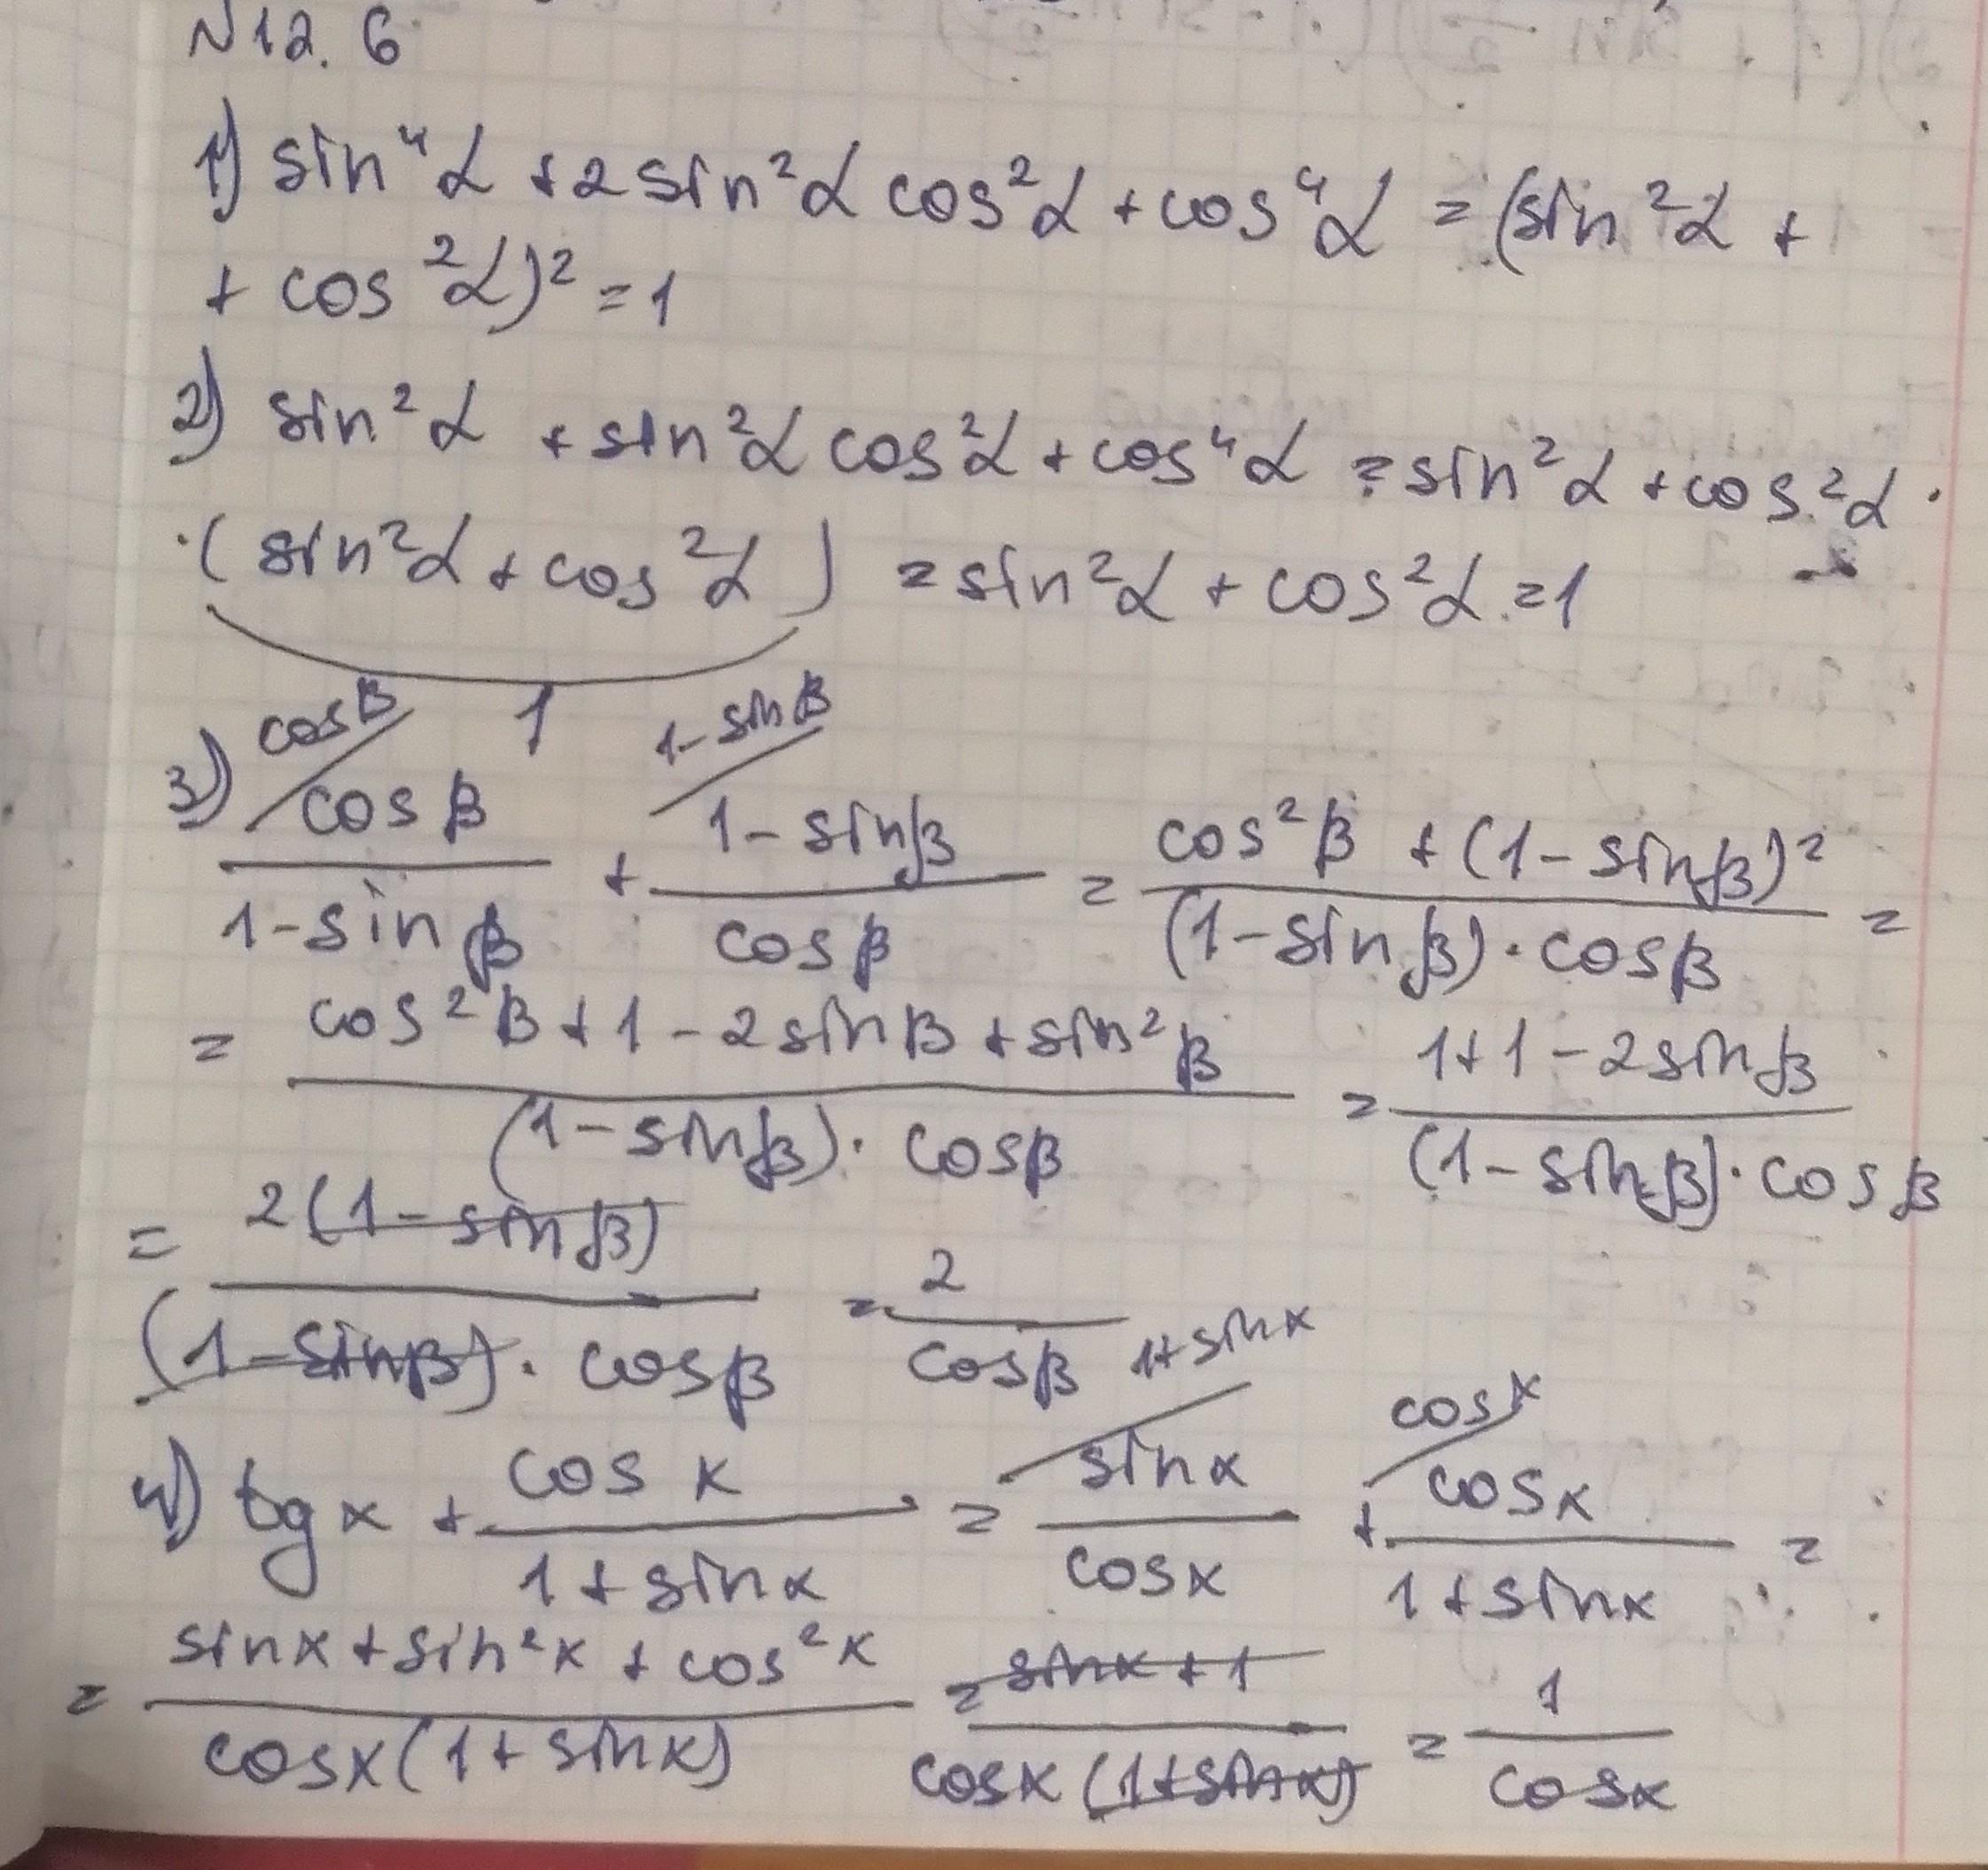 N12.6
1) sin⁴α + 2 sin²α cos²α + cos⁴α = (sin²α +
+ cos²α)² = 1
2) sin²α + sin²α cos²α + cos⁴α = sin²α + cos²α ·
· (sin²α + cos²α) = sin²α + cos²α = 1
1
cosβ 1-sinβ
3) cosβ/(1-sinβ) + (1-sinβ)/cosβ = (cos²β + (1-sinβ)²)/((1-sinβ)·cosβ) =
= (cos²β + 1 - 2sinβ + sin²β)/((1-sinβ)·cosβ) = (1+1-2sinβ)/((1-sinβ)·cosβ)
= 2(1-sinβ)/((1-sinβ)·cosβ) = 2/cosβ
1+sinx cosx
4) tgx + cosx/(1+sinx) = sinx/cosx + cosx/(1+sinx) =
= (sinx + sin²x + cos²x)/(cosx(1+sinx)) = (sinx+1)/(cosx(1+sinx)) = 1/cosx